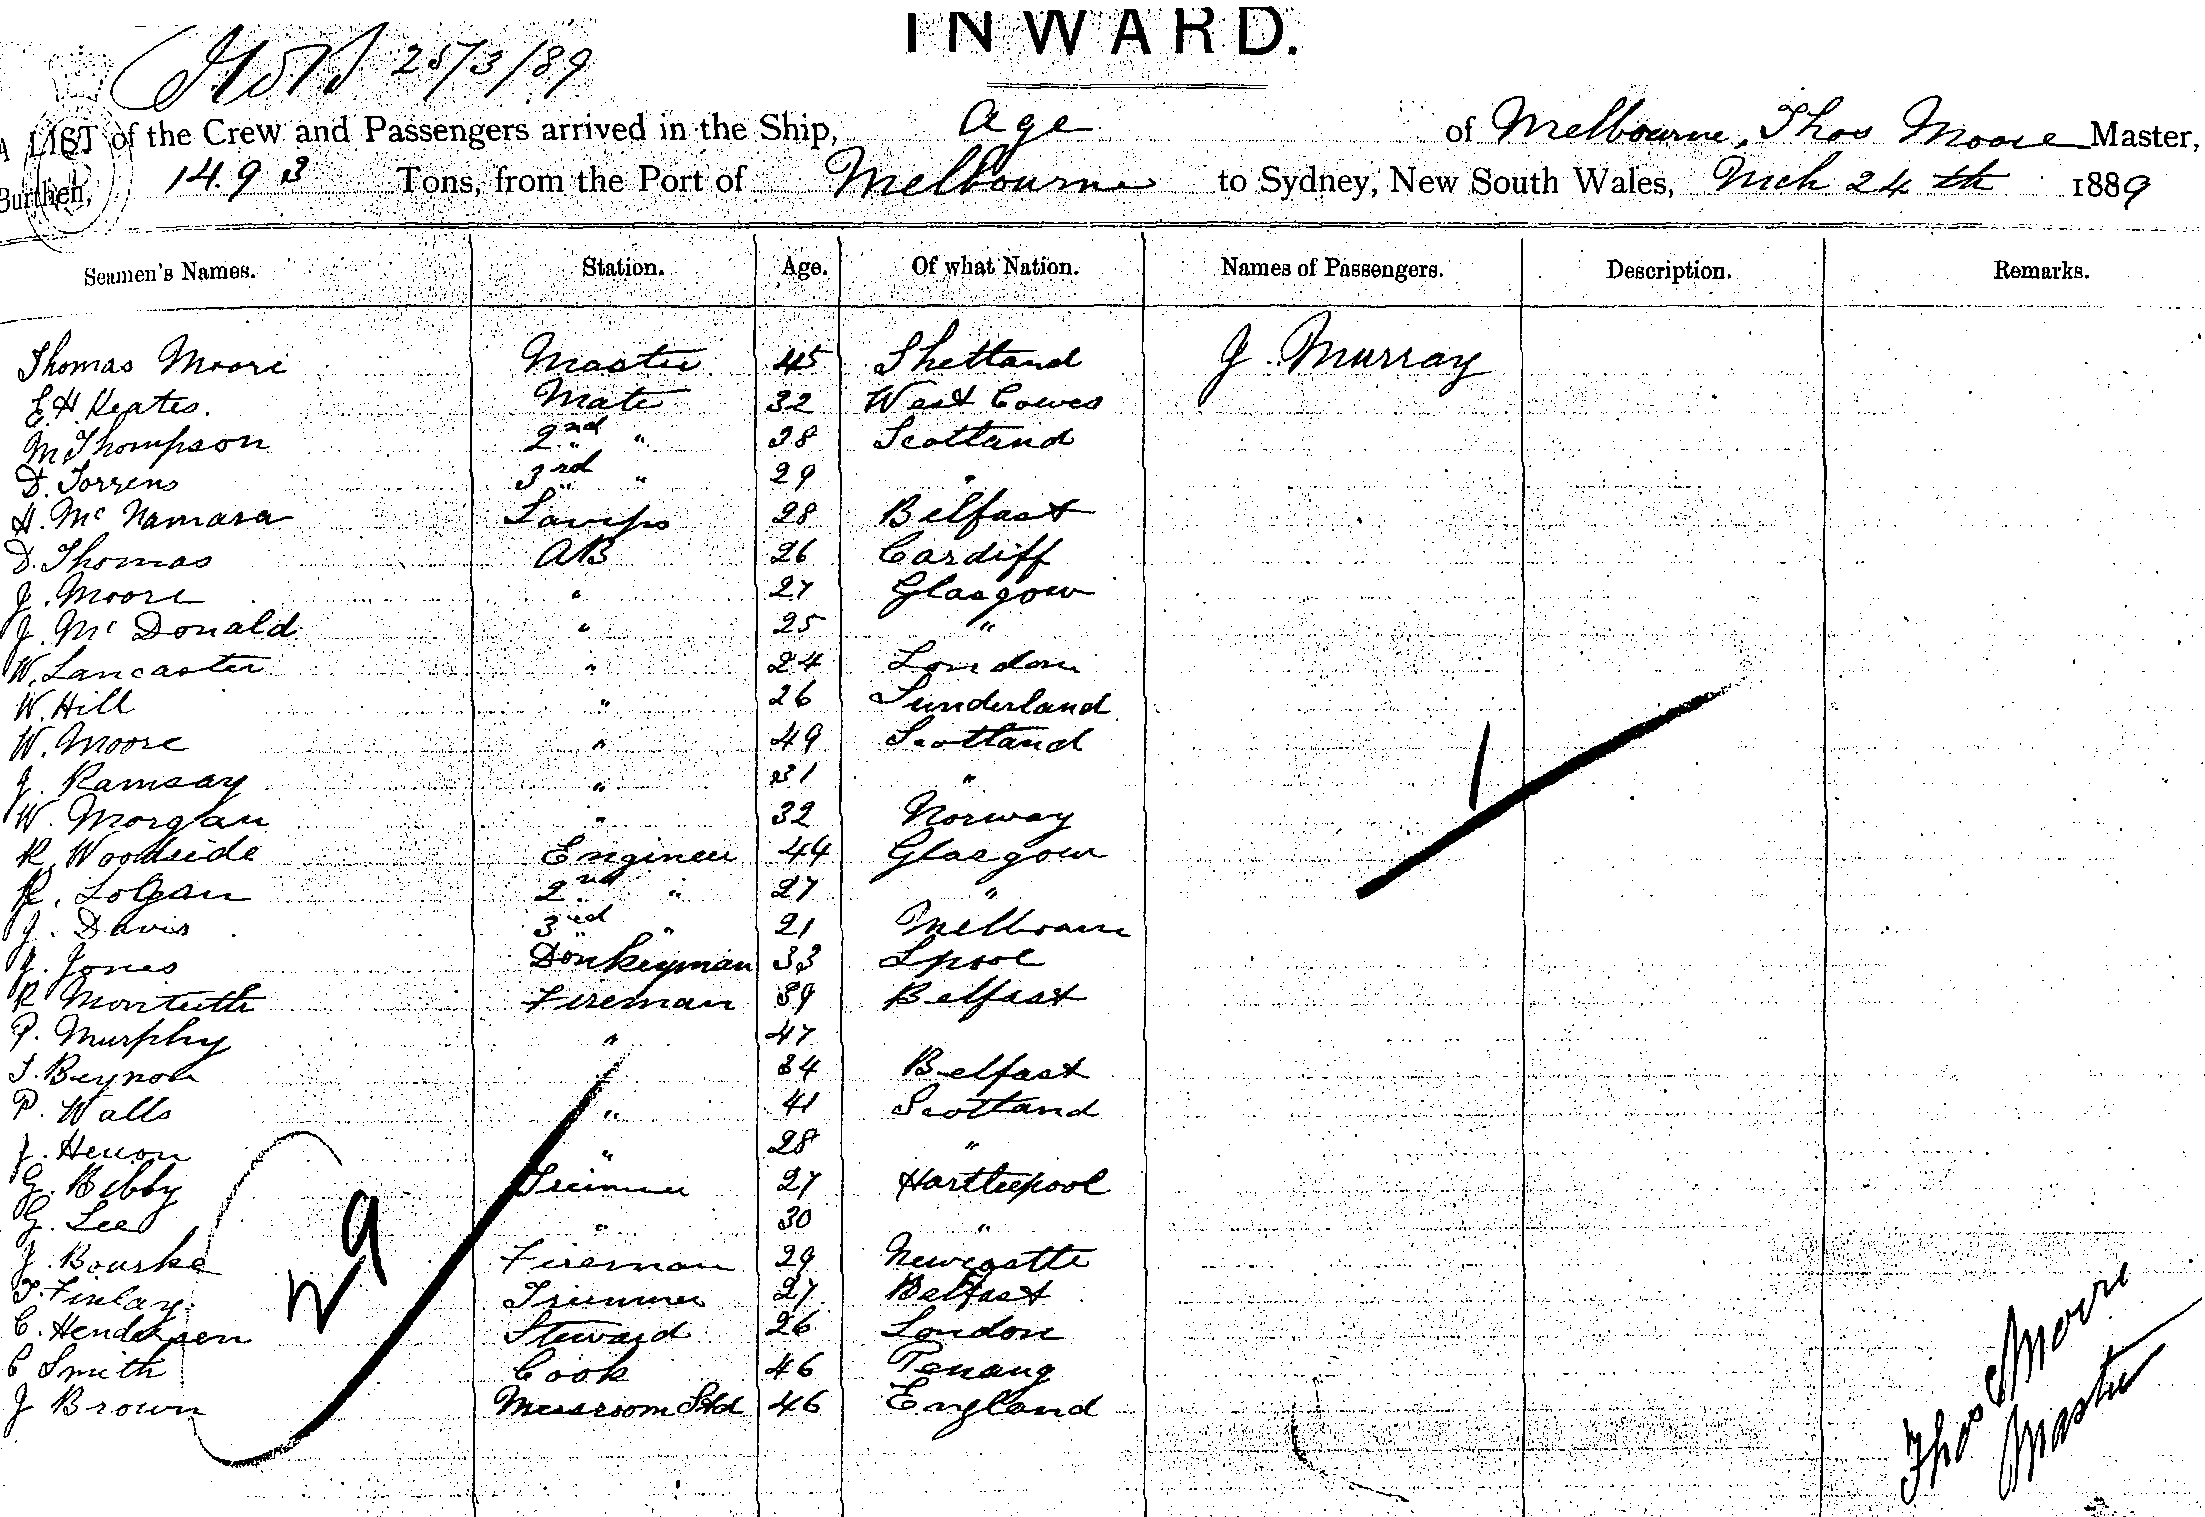 INWARD.
25/3/89
A LIST of the Crew and Passengers arrived in the Ship, Age of Melbourne, Thos Moore Master,
Burthen, 1493 Tons, from the Port of Melbourne to Sydney, New South Wales, Mch 24th 1889
Seamen's Names. Station. Age. Of what Nation. Names of Passengers. Description. Remarks.
Thomas Moore Master 45 Shetland J. Murray
E.H. Keates. Mate 32 West Cowes
M Thompson 2nd " 38 Scotland
D. Torrens 3rd " 29 "
H. Mc Namara Lamps 28 Belfast
D. Thomas AB 26 Cardiff
J. Moore " 27 Glasgow
J. Mc Donald " 25 "
W. Lancaster " 24 London
W. Hill " 26 Sunderland
W. Moore " 49 Scotland
J. Ramsay " 31 "
W. Morgan " 32 Norway
R. Woodside Engineer 44 Glasgow
R. Logan 2nd " 27 "
J. Davis 3rd " 21 Melbourne
J. Jones Donkeyman 33 Lpool
R Monteith Fireman 39 Belfast
P. Murphy " 47
T. Beynon 34 Belfast
P. Walls " 41 Scotland
J. Heuon " 28 "
G. Bibby Trimmer 27 Hartlepool
G. Lee " 30 "
J. Bourke Fireman 29 Newcastle
F. Finlay Trimmer 27 Belfast
C. Hendersen Steward 26 London
C Smith Cook 46 Penang
J Brown Messroom Std 46 England
1
29
Thos Moore
Master